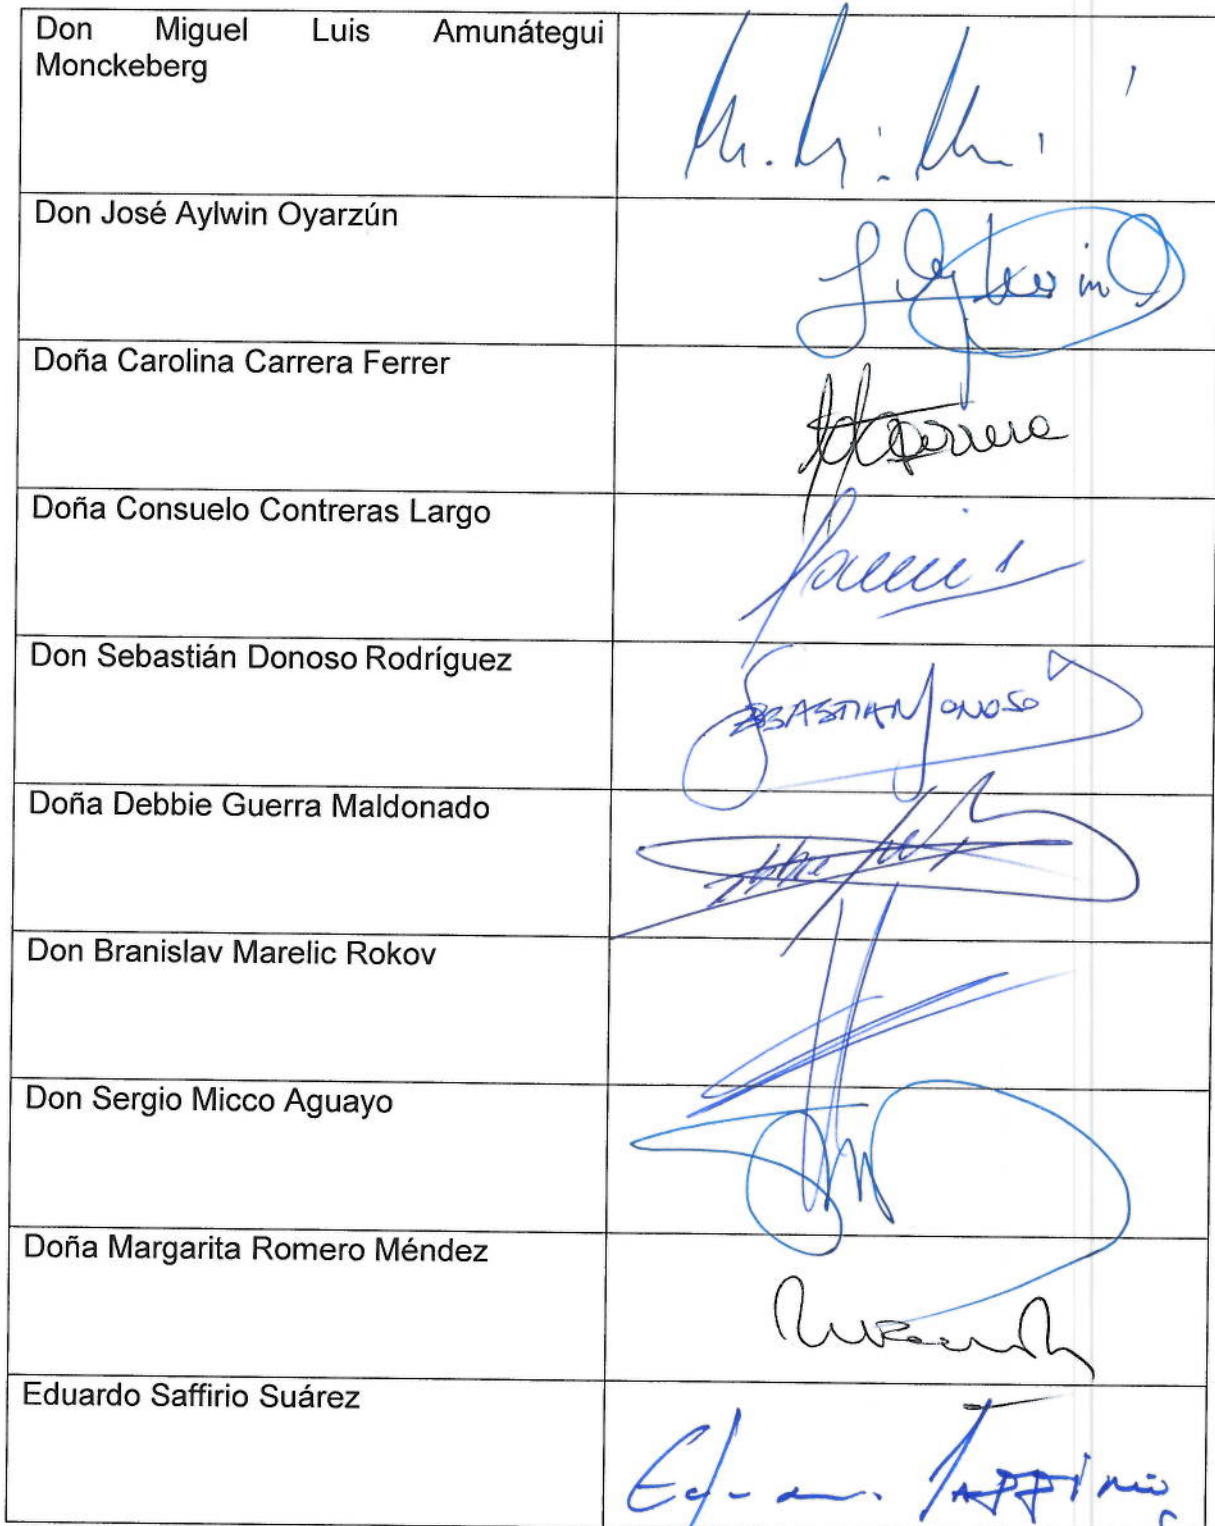 Don Miguel Luis Amunátegui
Monckeberg
Don José Aylwin Oyarzún
Doña Carolina Carrera Ferrer
Doña Consuelo Contreras Largo
Don Sebastián Donoso Rodríguez
SEBASTIAN DONOSO
Doña Debbie Guerra Maldonado
Don Branislav Marelic Rokov
Don Sergio Micco Aguayo
Doña Margarita Romero Méndez
Eduardo Saffirio Suárez